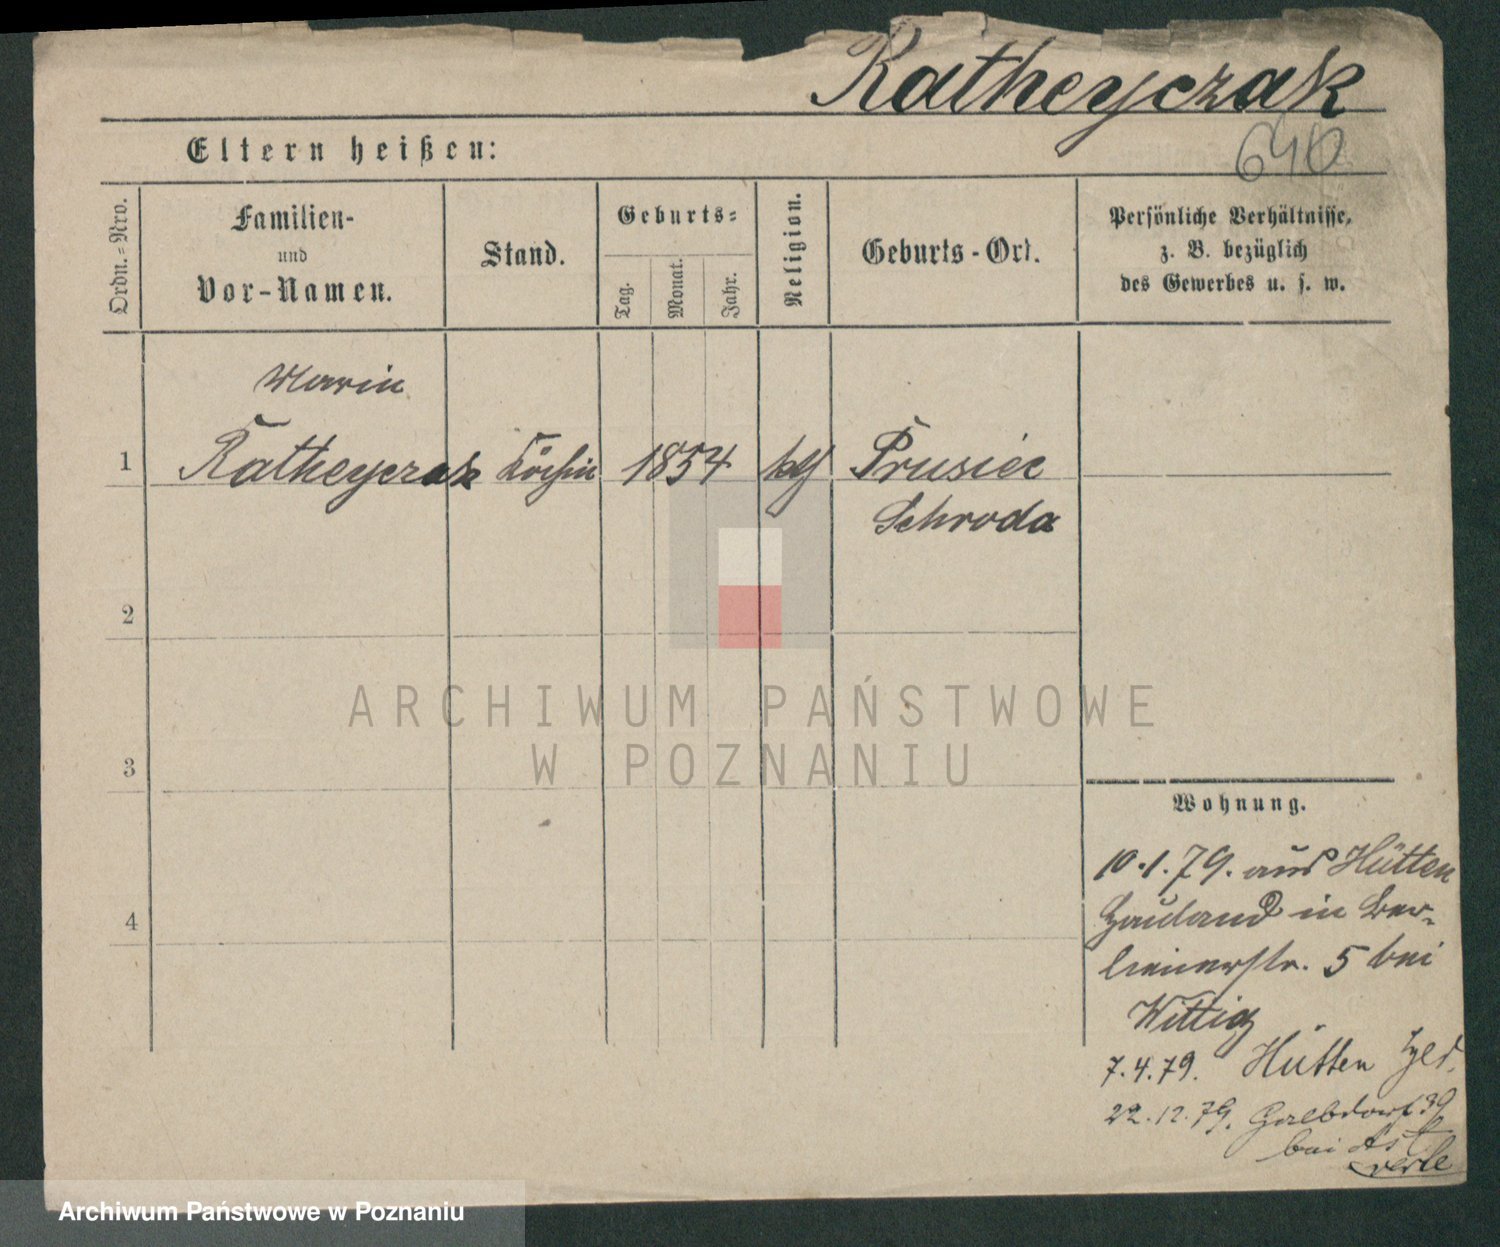 Ratheyczak
640
Eltern heißen:
Ordn.=Nro.
Familien-
und
Vor-Namen.
Stand.
Geburts=
Tag.
Monat.
Jahr.
Religion.
Geburts-Ort.
Persönliche Verhältnisse,
z. B. bezüglich
des Gewerbes u. s. w.
Marie
1 Ratheyczak Köchin 1854 kth Prusiec
Schroda
2
3
4
ARCHIWUM PAŃSTWOWE
W POZNANIU
Wohnung.
10.1.79. aus Hütten
Hauland in Ber-
linerstr. 5 bei
Wittig
7.4.79. Hütten Hld.
22.12.79. 39
bei
Archiwum Państwowe w Poznaniu